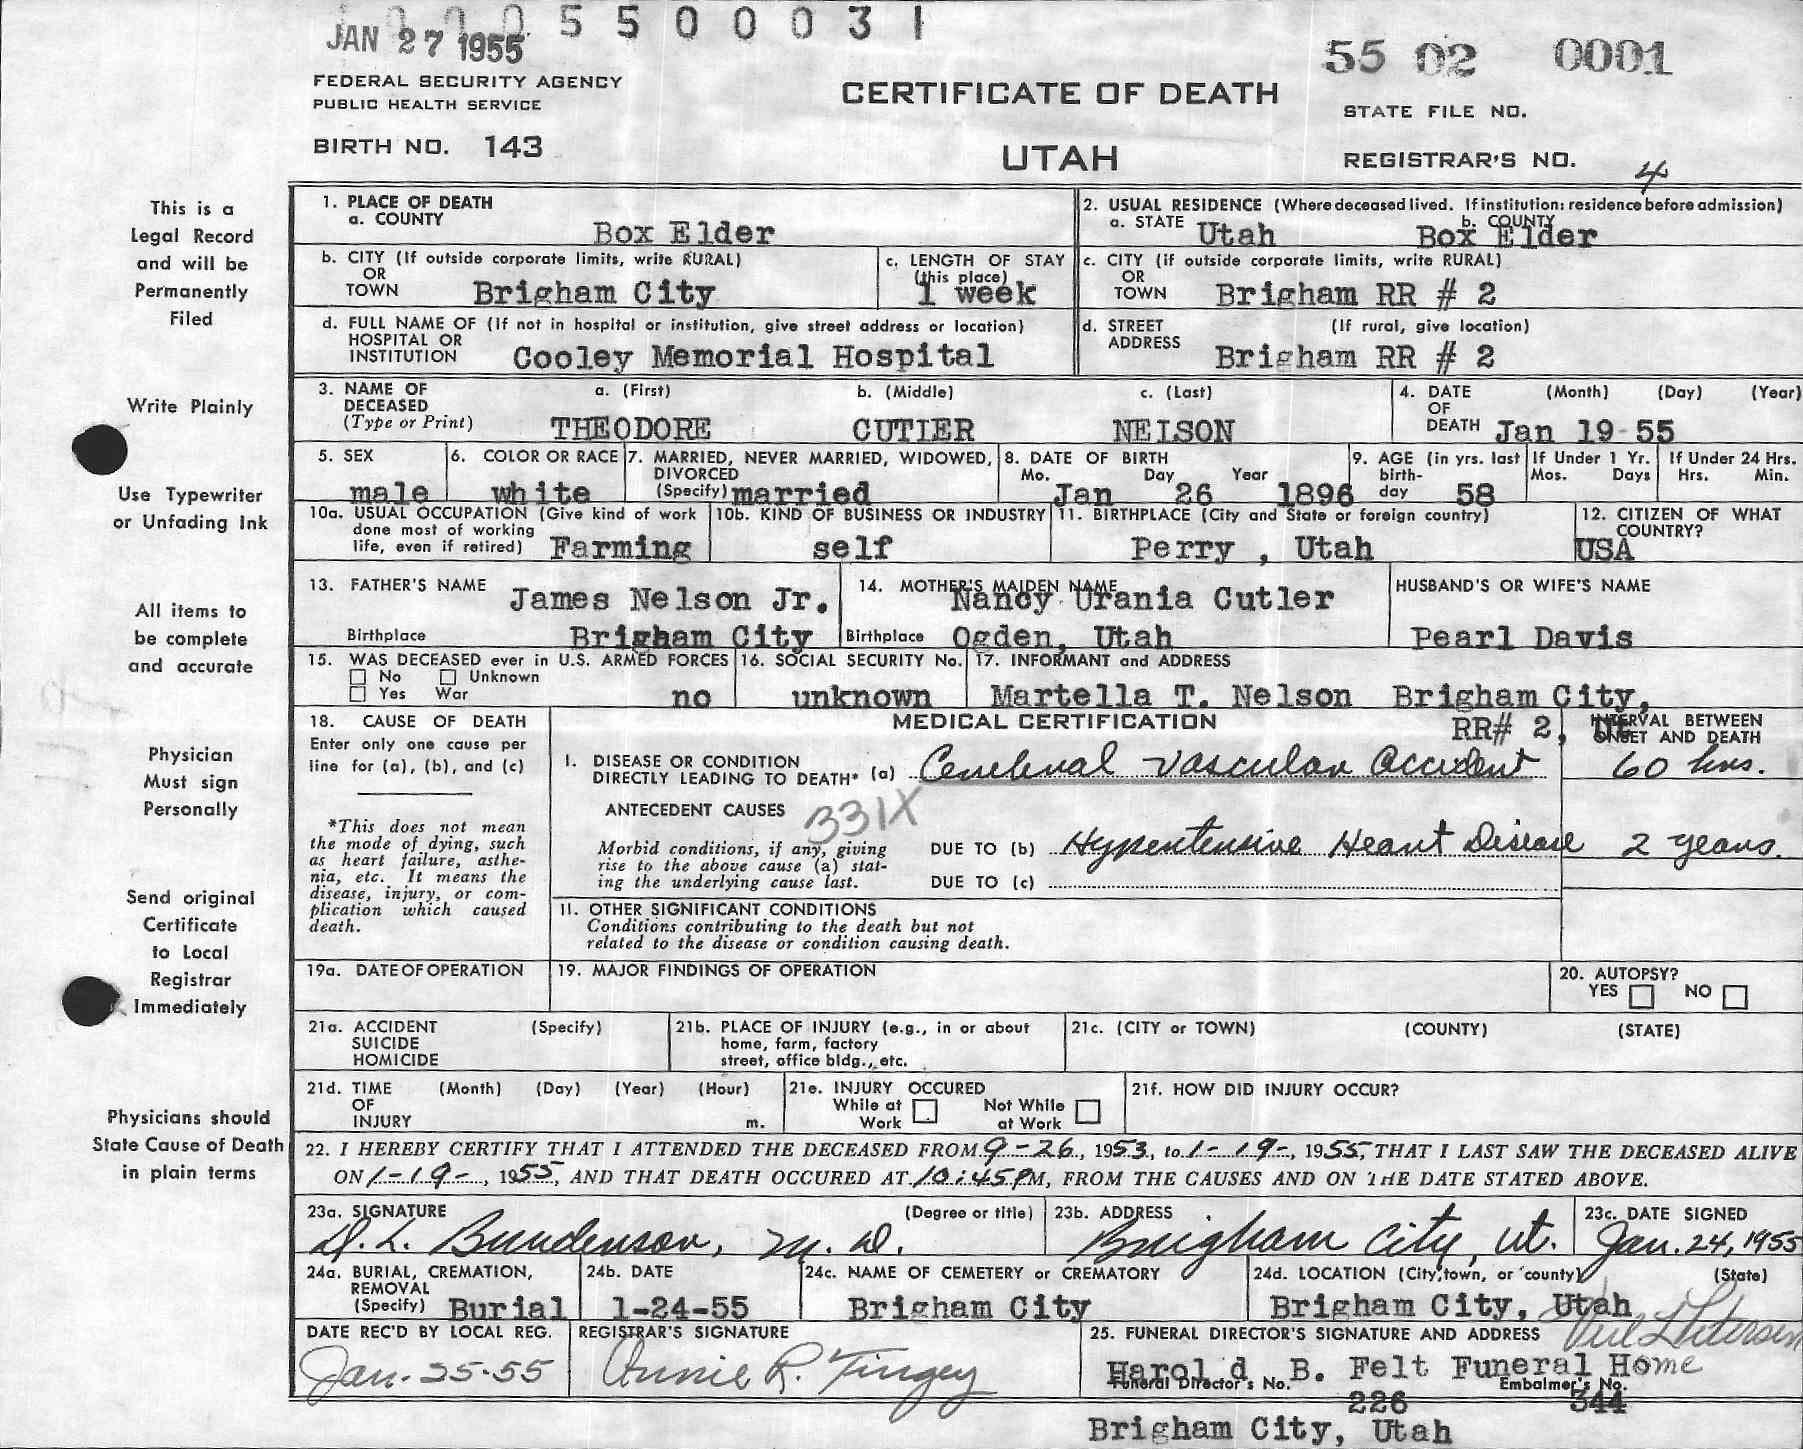 0005500031
JAN 27 1955
55 02 0001
FEDERAL SECURITY AGENCY
PUBLIC HEALTH SERVICE
CERTIFICATE OF DEATH
STATE FILE NO.
BIRTH NO. 143
UTAH
REGISTRAR'S NO. 4
This is a
Legal Record
and will be
Permanently
Filed
Write Plainly
Use Typewriter
or Unfading Ink
All items to
be complete
and accurate
Physician
Must sign
Personally
Send original
Certificate
to Local
Registrar
Immediately
Physicians should
State Cause of Death
in plain terms
1. PLACE OF DEATH
a. COUNTY Box Elder
2. USUAL RESIDENCE (Where deceased lived. If institution: residence before admission)
a. STATE Utah b. COUNTY Box Elder
b. CITY (If outside corporate limits, write RURAL)
OR
TOWN Brigham City
c. LENGTH OF STAY
(this place)
1 week
c. CITY (if outside corporate limits, write RURAL)
OR
TOWN Brigham RR # 2
d. FULL NAME OF (If not in hospital or institution, give street address or location)
HOSPITAL OR
INSTITUTION Cooley Memorial Hospital
d. STREET (If rural, give location)
ADDRESS
Brigham RR # 2
3. NAME OF a. (First) b. (Middle) c. (Last)
DECEASED
(Type or Print) THEODORE CUTLER NELSON
4. DATE (Month) (Day) (Year)
OF
DEATH Jan 19 55
5. SEX
male
6. COLOR OR RACE
white
7. MARRIED, NEVER MARRIED, WIDOWED,
DIVORCED
(Specify) married
8. DATE OF BIRTH
Mo. Day Year
Jan 26 1896
9. AGE (in yrs. last
birth-
day 58
If Under 1 Yr.
Mos. Days
If Under 24 Hrs.
Hrs. Min.
10a. USUAL OCCUPATION (Give kind of work
done most of working
life, even if retired) Farming
10b. KIND OF BUSINESS OR INDUSTRY
self
11. BIRTHPLACE (City and State or foreign country)
Perry , Utah
12. CITIZEN OF WHAT
COUNTRY?
USA
13. FATHER'S NAME James Nelson Jr.
Birthplace Brigham City
14. MOTHER'S MAIDEN NAME Nancy Urania Cutler
Birthplace Ogden, Utah
HUSBAND'S OR WIFE'S NAME
Pearl Davis
15. WAS DECEASED ever in U.S. ARMED FORCES
No Unknown
Yes War no
16. SOCIAL SECURITY No.
unknown
17. INFORMANT and ADDRESS
Martella T. Nelson Brigham City,
RR# 2, Ut
18. CAUSE OF DEATH
Enter only one cause per
line for (a), (b), and (c)
*This does not mean
the mode of dying, such
as heart failure, asthe-
nia, etc. It means the
disease, injury, or com-
plication which caused
death.
MEDICAL CERTIFICATION
INTERVAL BETWEEN
ONSET AND DEATH
I. DISEASE OR CONDITION
DIRECTLY LEADING TO DEATH* (a) Cerebral vascular accident 60 hrs.
ANTECEDENT CAUSES 331X
Morbid conditions, if any, giving
rise to the above cause (a) stat-
ing the underlying cause last.
DUE TO (b) Hypertensive Heart Disease 2 years.
DUE TO (c)
II. OTHER SIGNIFICANT CONDITIONS
Conditions contributing to the death but not
related to the disease or condition causing death.
19a. DATE OF OPERATION
19. MAJOR FINDINGS OF OPERATION
20. AUTOPSY?
YES NO
21a. ACCIDENT (Specify)
SUICIDE
HOMICIDE
21b. PLACE OF INJURY (e.g., in or about
home, farm, factory
street, office bldg., etc.
21c. (CITY or TOWN) (COUNTY) (STATE)
21d. TIME (Month) (Day) (Year) (Hour)
OF
INJURY m.
21e. INJURY OCCURED
While at Work Not While at Work
21f. HOW DID INJURY OCCUR?
22. I HEREBY CERTIFY THAT I ATTENDED THE DECEASED FROM 9-26, 1953, to 1-19-, 1955, THAT I LAST SAW THE DECEASED ALIVE
ON 1-19-, 1955, AND THAT DEATH OCCURED AT 10:45PM, FROM THE CAUSES AND ON THE DATE STATED ABOVE.
23a. SIGNATURE (Degree or title)
D. L. Bunderson, M. D.
23b. ADDRESS
Brigham City, Ut.
23c. DATE SIGNED
Jan. 24, 1955
24a. BURIAL, CREMATION,
REMOVAL
(Specify) Burial
24b. DATE
1-24-55
24c. NAME OF CEMETERY or CREMATORY
Brigham City
24d. LOCATION (City, town, or county) (State)
Brigham City, Utah
DATE REC'D BY LOCAL REG.
Jan. 25-55
REGISTRAR'S SIGNATURE
Annie R. Tingey
25. FUNERAL DIRECTOR'S SIGNATURE AND ADDRESS
Harold B. Felt Funeral Home
Funeral Director's No. Embalmer's No.
226 344
Brigham City, Utah